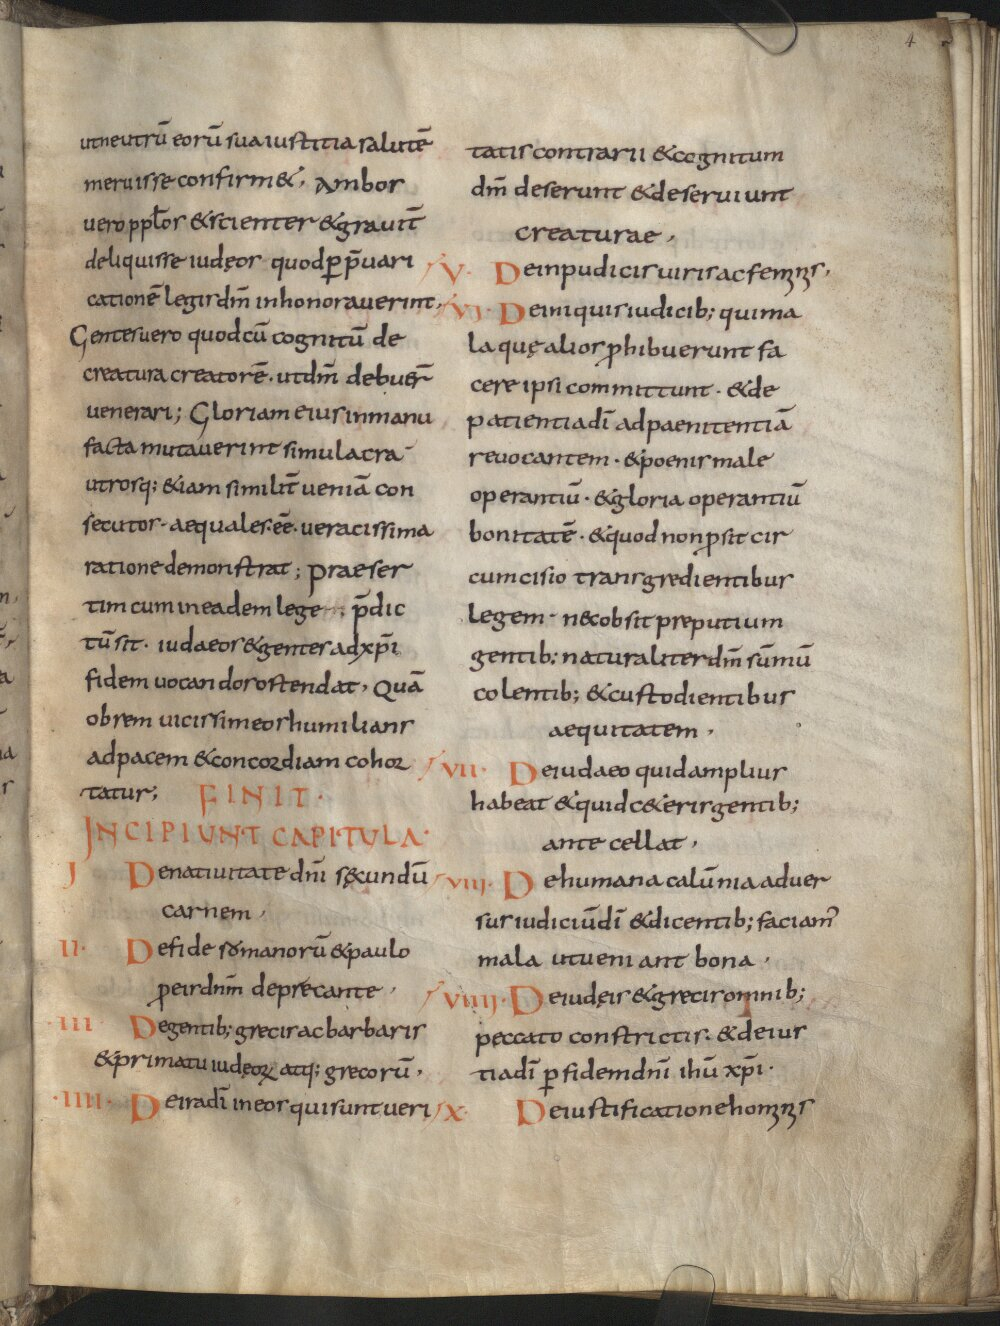 4
utneutrū eorū sua iustitia salutē
meruisse confirm&, Ambor
vero pplos &scienter &grauit̄
deliquisse iudęos quod p̱ p̄uari
cationē legis dm̄ inhonoraverint,
Gentes vero quod cū cognitū de
creatura creatorē · ut dm̄ debuer̄
venerari; Gloriam eius in manu
facta mutaverint simulacra
utrosq; &iam similit̄ veniā con
secutos · aequales · eē · veracissima
ratione demonstrat; praeser
tim cum in eadem lege p̄dic
tū sit · iudaeos &gentes ad xp̄i
fidem vocandos ostendat, Quā
obrem vicissim eos humilians
ad pacem &concordiam cohor
tatur; FINIT ·
INCIPIUNT CAPITULA ·
I De nativitate dn̄i sęcundū
carnem,
II · De fide romanorū &paulo
p̱ eis dn̄m deprecante,
· III · De gentib; grecis ac barbaris
&primatu iudęoꝝ atq; grecorū,
· IIII · De iradī in eos qui sunt veri
tatis contrarii &cognitum
dm̄ deserunt &deserviunt
creaturae,
V · De inpudicis viris ac femꝫꝫs,
VI · De iniquis iudicib; qui ma
la quę alios ꝓhibuerunt fa
cere ipsi committunt · &de
patientia dī ad paenitentiā
revocantem · &poenis male
operantiū · &gloria operantiū
bonitatē · &quod non ꝓsit cir
cumcisio transgredientibus
legem · nec obsit preputium
gentib; naturaliter dm̄ sūmū
colentib; &custodientibus
aequitatem,
VII · De iudaeo quid amplius
habeat &quid c&eris gentib;
ante cellat,
VIII · De humana calūnia adver
sus iudiciū dī &dicentib; faciam᾽
mala ut veniant bona,
VIIII · De iudęis &grecis omnib;
peccato constrictis · &de ius
titia dī p̱ fidem dn̄i ihū xp̄i ·
X · De iustificatione homꝫꝫs